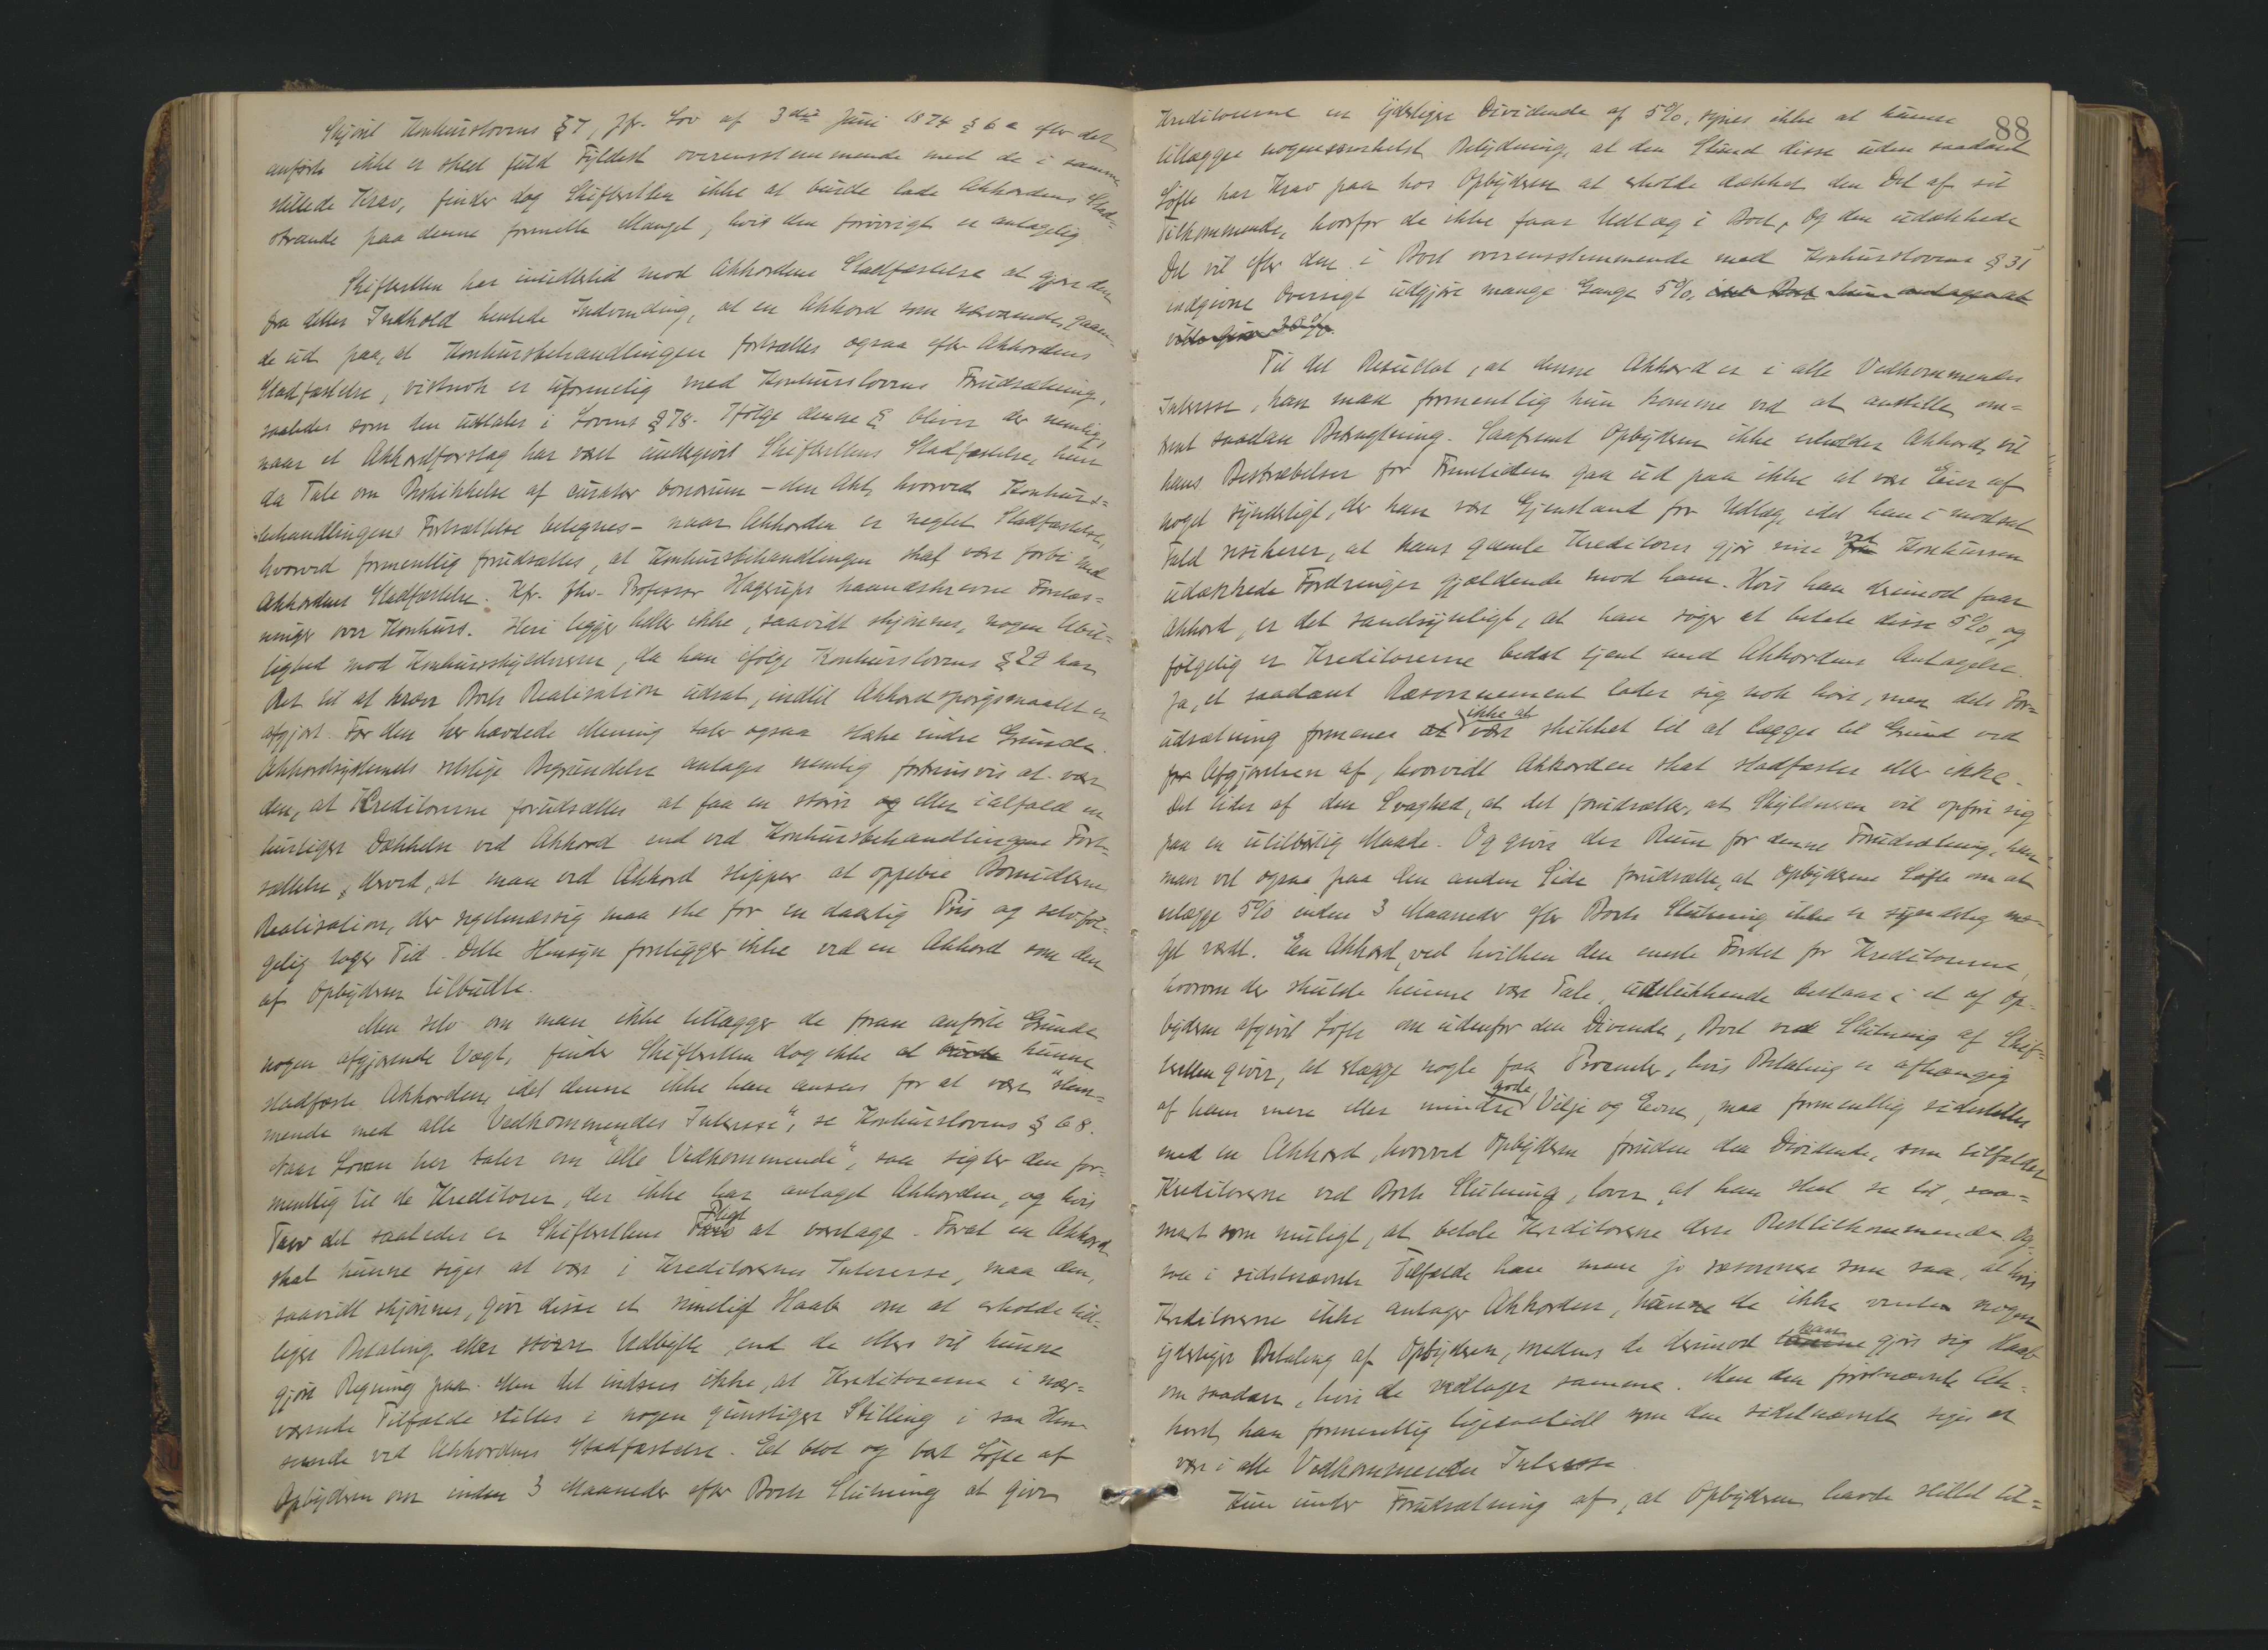 Skjønt Konkurslovens § 7, jfr. Lov af 3die Juni 1874 § 6 a efter det
anførte ikke er skeet fuld Fyldest overensstemmende med de i samme
stillede Krav, finder dog Skifteretten ikke at burde lade Akkordens Stad-
strande paa denne formelle Mangel, hvis den forøvrigt er antagelig
Skifteretten har imidlertid mod Akkordens Stadfæstelse at gjøre den
fra dettes Indhold hentede Indvending, at en Akkord som nærværende, gaaen-
de ud paa, at Konkursbehandlingen fortsættes ogsaa efter Akkordens
Stadfæstelse, vistnok er uforenelig med Konkurslovens Forudsætning,
saaledes som den udtales i Lovens § 78. Ifølge denne § bliver der nemlig,
naar et Akkordforslag har været undergivet Skifterettens Stadfæstelse, kun
da Tale om Beskikkelse af curator bonorum – den Akt, hvorved Konkurs-
behandlingens Fortsættelse betegnes – naar Akkorden er negtet Stadfæstelse,
hvorved formentlig forudsættes, at Konkursbehandlingen skal være forbi med
Akkordens Stadfæstelse. Kfr. Professor Hagerups haandskrevne Forelæs-
ninger over Konkurs. Heri ligger heller ikke, saavidt skjønnes, nogen Ubil-
lighed mod Konkursskyldneren, da han ifølge Konkurslovens § 29 har
Ret til at kræve Boets Realisation udsat, indtil Akkordspørgsmaalet er
afgjort. For den her hævdede Mening taler ogsaa stærke indre Grunde.
Akkordsystemets retslige Begrundelse antages nemlig fortrinsvis at være
den, at Kreditorerne forudsættes at faa en større og eller ialfald en
hurtigere Dækkelse ved Akkord end ved Konkursbehandlingens Fort-
sættelse, derved, at man ved Akkord slipper at oppebie Bomidlernes
Realisation, der regelmæssig maa ske for en daarlig Pris og selvføl-
gelig tager Tid. Dette Hensyn foreligger ikke ved en Akkord som den
af Opbyderen tilbudte.
Men selv om man ikke tillægger de foran anførte Grunde
nogen afgjørende Vægt, finder Skifteretten dog ikke at burde kunne
stadfæste Akkorden, idet denne ikke kan ansees for at være "stem-
mende med alle Vedkommendes Interesse", se Konkurslovens § 68.
Naar Loven her taler om "alle Vedkommende", saa sigter den for-
mentlig til de Kreditorer, der ikke har antaget Akkorden, og hvis
Tarv det saaledes er Skifterettens Pligt at varetage. Forat en Akkord
skal kunne siges at være i Kreditorernes Interesse, maa den,
saavidt skjønnes, give disse et rimeligt Haab om at erholde tid-
ligere Betaling eller større Udbytte, end de ellers vil kunne
gjøre Regning paa. Men det indsees ikke, at Kreditorerne i nær-
værende Tilfælde stilles i nogen gunstigere Stilling i saa Hen-
seende ved Akkordens Stadfæstelse. Et blot og bart Løfte af
Opbyderen om inden 3 Maaneder efter Boets Slutning at give
88
Kreditorerne en yderligere Dividende af 5%, synes ikke at kunne
tillægges nogensomhelst Betydning, al den Stund disse uden saadant
Løfte har Krav paa hos Opbyderen at erholde dækket den Del af sit
Tilkommende, hvorfor de ikke faar Udlæg i Boet, og den udækkede
Del vil efter den i Boet overensstemmende med Konkurslovens § 31
indgivne Oversigt udgjøre mange Gange 5%, idet Boet kun antages at
ville give
Til det Resultat, at denne Akkord er i alle Vedkommendes
Interesse, kan man formentlig kun komme ved at anstille om-
trent saadan Betragtning. Saafremt Opbyderen ikke erholder Akkord, vil
hans Bestræbelser for Fremtiden gaa ud paa ikke at være Eier af
noget synderligt, der kan være Gjenstand for Udlæg, idet han i modsat
Fald risikerer, at hans gamle Kreditorer gjør sine ved fra Konkursen
udækkede Fordringer gjældende mod ham. Hvis han derimod faar
Akkord, er det sandsynligt, at han søger at betale disse 5%, og
følgelig er Kreditorerne bedst tjent med Akkordens Antagelse.
Ja, et saadant Ræsonnement lader sig nok høre, men dets For-
udsætning formenes at ikke at være skikket til at lægges til Grund ved
for Afgjørelsen af, hvorvidt Akkorden skal stadfæstes eller ikke.
Det lider af den Svaghed, at det forudsætter, at Skyldneren vil opføre sig
paa en utilbørlig Maade. Og gives der Rum for denne Forudsætning, kan
man vel ogsaa paa den anden Side forudsætte, at Opbyderens Løfte om at
erlægge 5% inden 3 Maaneder efter Boets Slutning ikke er synderlig me-
get værdt. En Akkord, ved hvilken den eneste Fordel for Kreditorerne,
hvorom der skulde kunne være Tale, udelukkende bestaar i et af Op-
byderen afgivet Løfte om udenfor den Divende, Boet ved Slutning af Skif-
teretten giver, at erlægge nogle faa Procenter, hvis Betaling er afhængig
af hans mere eller mindre gode Vilje og Evne, maa formentlig sidestilles
med en Akkord, hvorved Opbyderen foruden den Dividende, som tilfalder
Kreditorerne ved Boets Slutning, lover, at han skal se til, saa-
snart som muligt, at betale Kreditorerne deres Resttilkommende. Og-
saa i sidstnævnte Tilfælde kan man jo ræsonnere som saa, at hvis
Kreditorerne ikke antager Akkorden, kunne de ikke vente nogen
yderligere Betaling af Opbyderen, medens de derimod kunne kan gjøre sig Haab
om saadan, hvis de vedtager samme. Men den førstnævnte Ak-
kord kan formentlig ligesaalidt som den sidstnævnte siges at
være i alle Vedkommendes Interesse.
Kun under Forudsætning af, at Opbyderen havde stillet til-